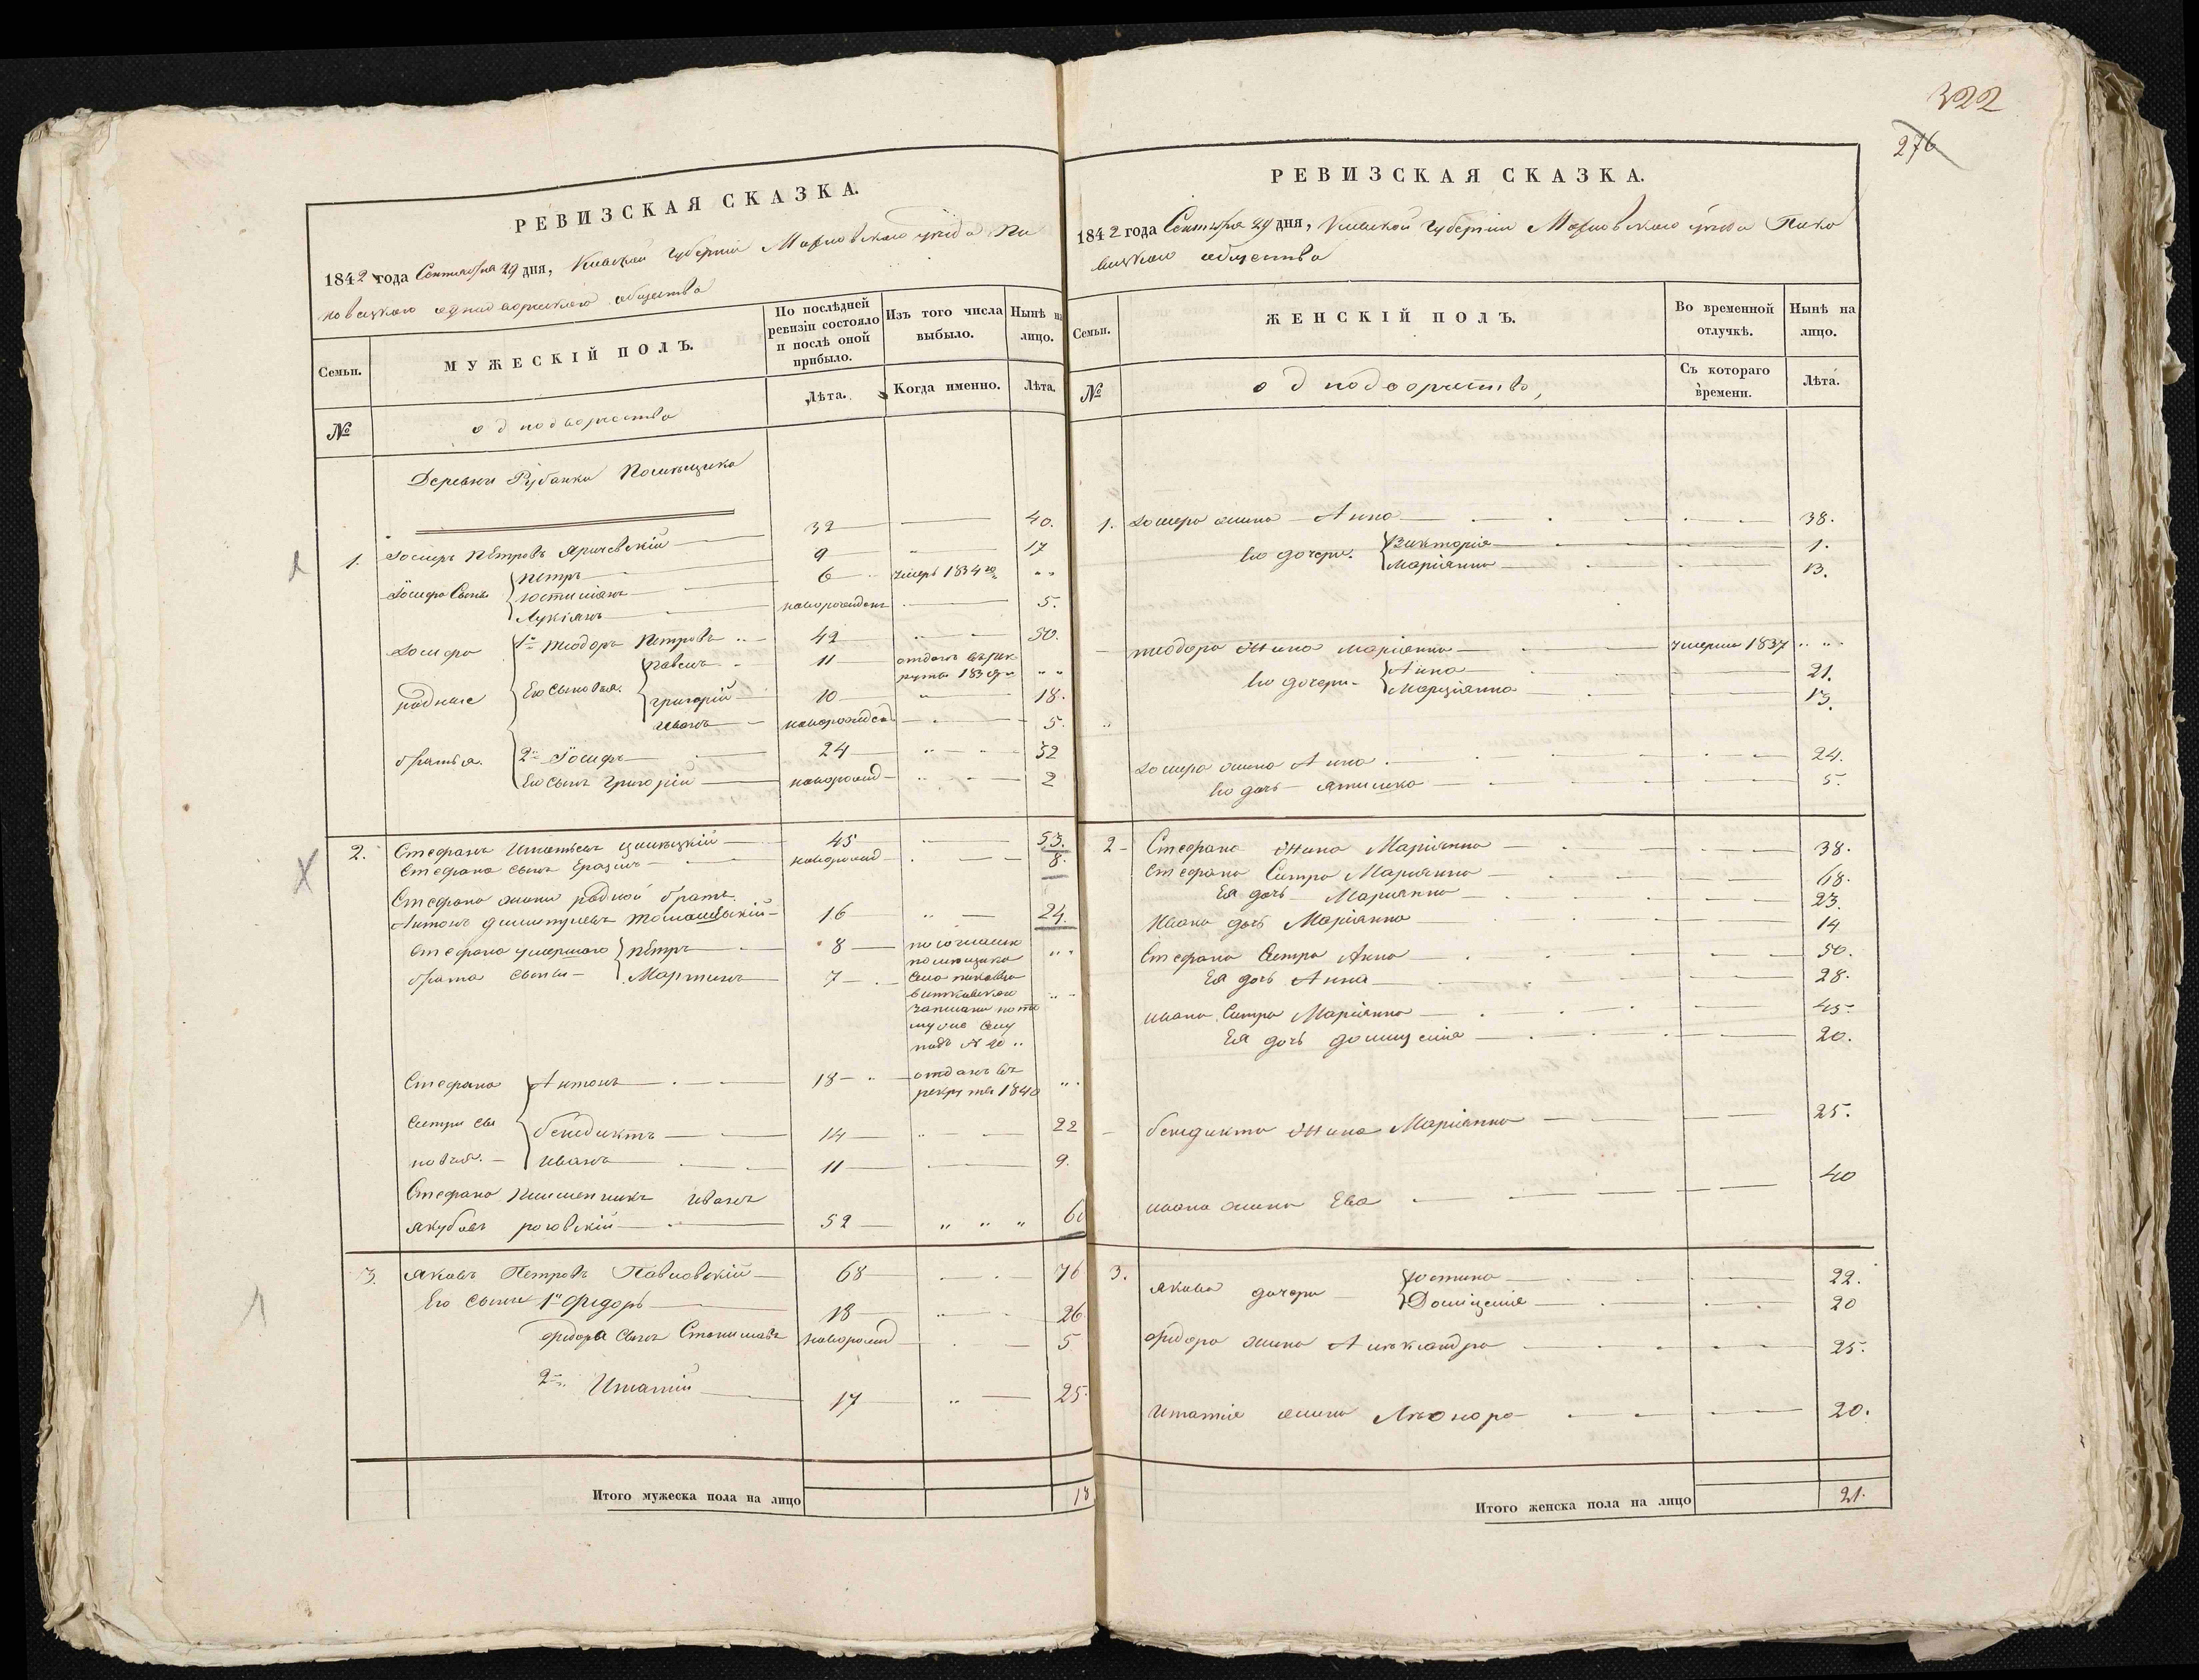 322
276
РЕВИЗСКАЯ СКАЗКА.
1842 года Сентября 29 дня, Киевской Губернии Махновского уезда Пи
ковецкого однодворческого общества
Семьи.
МУЖЕСКІЙ ПОЛЪ.
По послѣдней ревизіи состояло и послѣ оной прибыло.
Изъ того числа выбыло.
Нынѣ на лицо.
№
однодворчества
Лѣта.
Когда именно.
Лѣта.
Деревни Рубанки Помещика
1. Іосифъ Петровъ Яричевскій 32 40.
Іосифа Сыны Петръ 9 17
Юстиніянъ 6 умеръ 1834 го „ „
Лукіянъ новорожденъ 5.
Іосифа 1й Теодоръ Петровъ 42 50.
родные Его сыновья. Павелъ 11 отданъ въ рек
руты 183 „ „
Григорій 10 18.
Иванъ новорожден 5.
братья. 2й Іосифъ 24 32
Его сынъ Григорій новорожд 2
2. Стефанъ Игнатьевъ 45 53.
Стефана сынъ Еразмъ новорожд 8.
Стефана жены родной братъ
Антонъ 16 24.
Стефана умершаго Петръ 8 по согласию
брата сыны Мартинъ 7 помещика
записаны по то
му же селу
подъ № 20 „
Стефана Антонъ 18 отданъ въ
рекруты 1840 „
Сестры сы Бенедиктъ 14 22
новья. Иванъ 11 9.
Стефана племенникъ Иванъ
Якубовъ роговскій 52 „ „ „ 60
3. Яковъ Петровъ Павловскій 68 76
Его сыны 1й Федоръ 18 26
Федора сынъ Станиславъ новорожд 5
2й Игнатій 17 25.
Итого мужеска пола на лицо 18
РЕВИЗСКАЯ СКАЗКА.
1842 года Сентября 29 дня, Киевской Губернии Махновского уезда Пико
вецкого общества
Семьи.
ЖЕНСКІЙ ПОЛЪ.
Во временной отлучкѣ.
Нынѣ на лицо.
№
однодворчество,
Съ котораго времени.
Лѣта.
1. Іосифа жена Анна 38.
Его дочери. Викторія 1.
Маріянна 13.
Теодора жена Маріянна умерла 1837 „ „
Его дочери Анна 21.
Марціянна 13.
Іосифа жена Анна 24.
Его дочь 5.
2 Стефана жена Маріянна 38.
Стефана Сестра Маріянна 68.
Ея дочь Маріянна 23.
Ивана дочь Маріянна 14
Стефана Сестра Анна 50.
Ея дочь Анна 28.
Ивана Сестра Маріянна 45
Ея дочь Домицеля 20.
Бенедикта жена Маріянна 25.
Ивана жена Ева 40
3. Якова дочери Юстина 22.
Домицелія 20
Федора жена Александра 25.
Игнатія жена Леонора 20.
Итого женска пола на лицо 21.